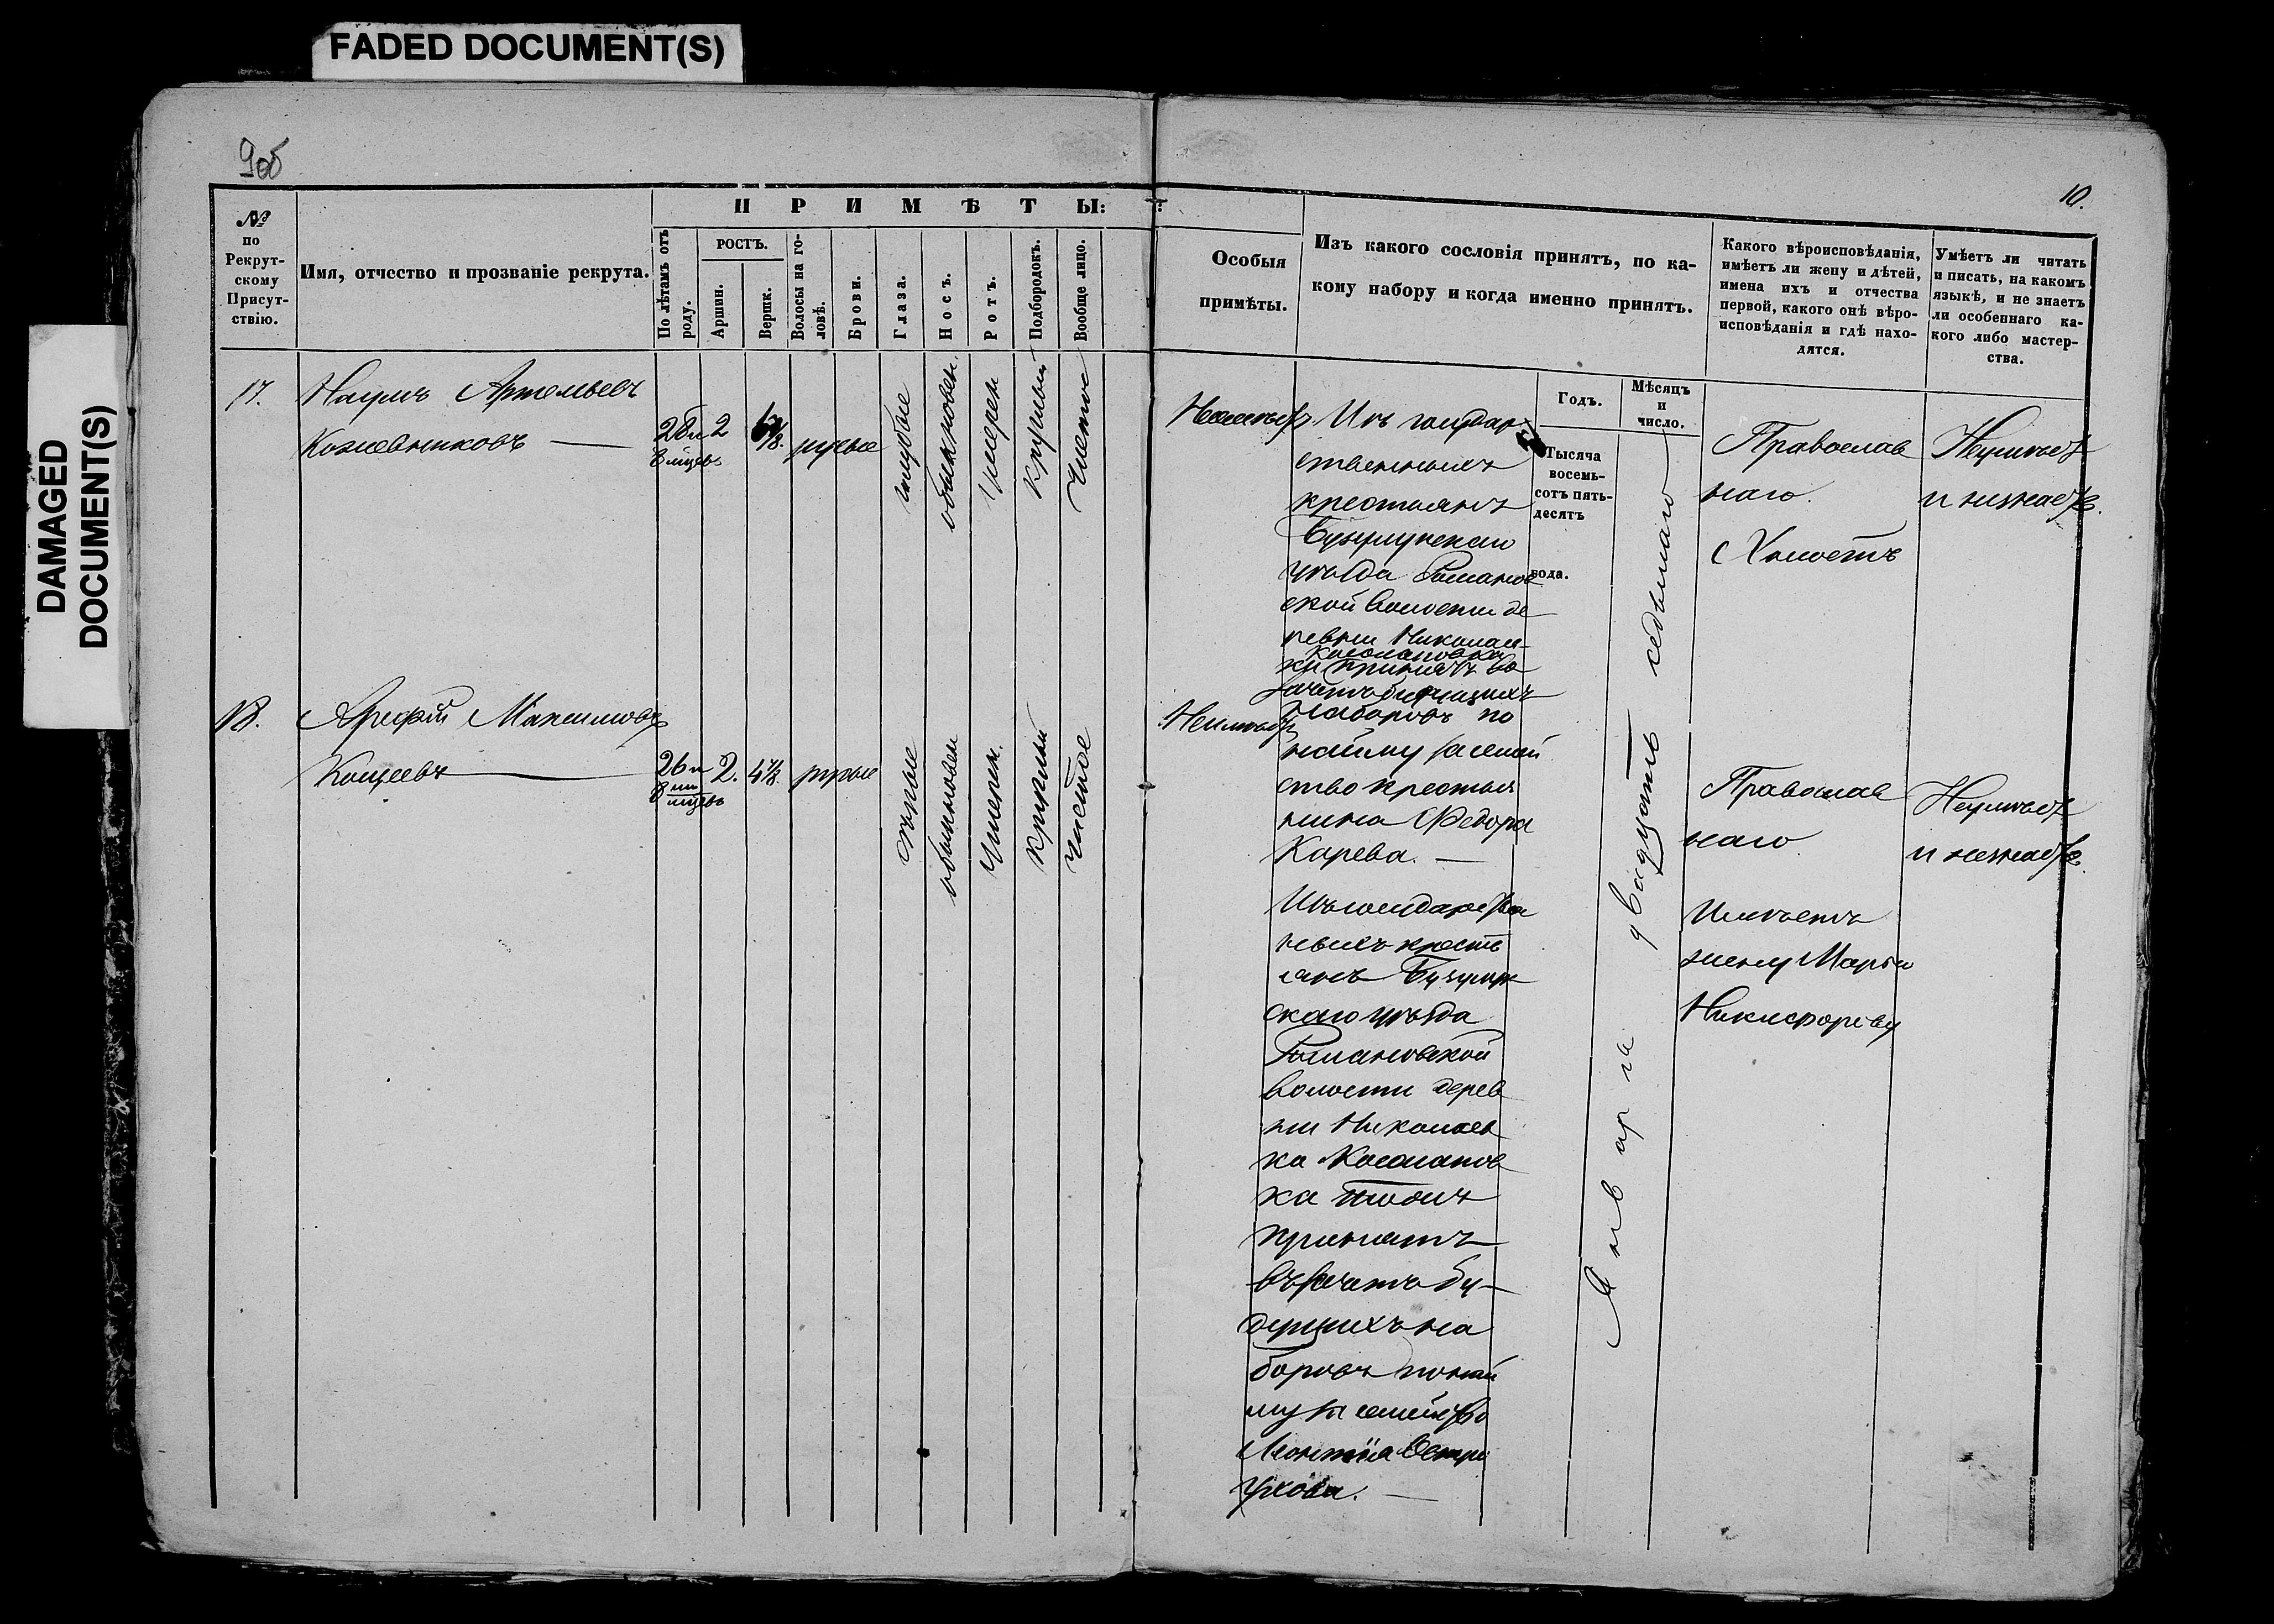 FADED DOCUMENT(S)
DAMAGED
DOCUMENT(S)
9об
10.
№
по
Рекрут-
скому
Присут-
ствію.
Имя, отчество и прозваніе рекрута.
ПРИМѢТЫ:
По лѣтамъ отъ
роду.
РОСТЪ.
Аршин.
Вершк.
Волосы на го-
ловѣ.
Брови.
Глаза.
Носъ.
Ротъ.
Подбородокъ.
Вообще лицо.
Особыя
примѣты.
Изъ какого сословія принятъ, по ка-
кому набору и когда именно принятъ.
Годъ.
Мѣсяцъ
и
число.
Какого вѣроисповѣданія,
имѣетъ ли жену и дѣтей,
имена ихъ и отчества
первой, какого онѣ вѣро-
исповѣданія и гдѣ нахо-
дятся.
Умѣетъ ли читать
и писать, на какомъ
языкѣ, и не знаетъ
ли особеннаго ка-
кого либо мастер-
ства.
17.
Наумъ Артемьевъ
Кожевниковъ
28 и
8 мцевъ
2
русые
голубые
обыкновен.
умерен
круглый
чистое
Неимѣетъ
Изъ государ
ственныхъ
крестьянъ
Бузулукскаго
уѣзда Романов
ской волости де
ревни Николаев
Касолаповка
ки принятъ въ
зачетъ будущихъ
наборовъ по
найму за семей
ство крестья
нина Федора
Карева.
Тысяча
восемь-
сотъ пять-
десятъ
года.
Января двадцать седьмаго
Православ
наго.
Холостъ
Неумѣетъ
и незнаетъ.
18.
Арефій Максимовъ
Кощеевъ
26 и
8 ми
мцевъ
2.
4 1/8.
русые
сѣрые
обыкновен
умерен.
круглый
чистое
Неимѣетъ
Изъ государстве
ныхъ кресть
янъ Бузулук
скаго уѣзда
Романовской
волости дерев
ни Николаев
ка Касолапов
ка тожъ
принятъ
въ зачетъ бу-
дущихъ на
боровъ по най
му за семейство
Леонтія Остро
ухова.
Православ
наго
Имѣетъ
жену Марью
Никифорову
Неумѣетъ
и незнаетъ.